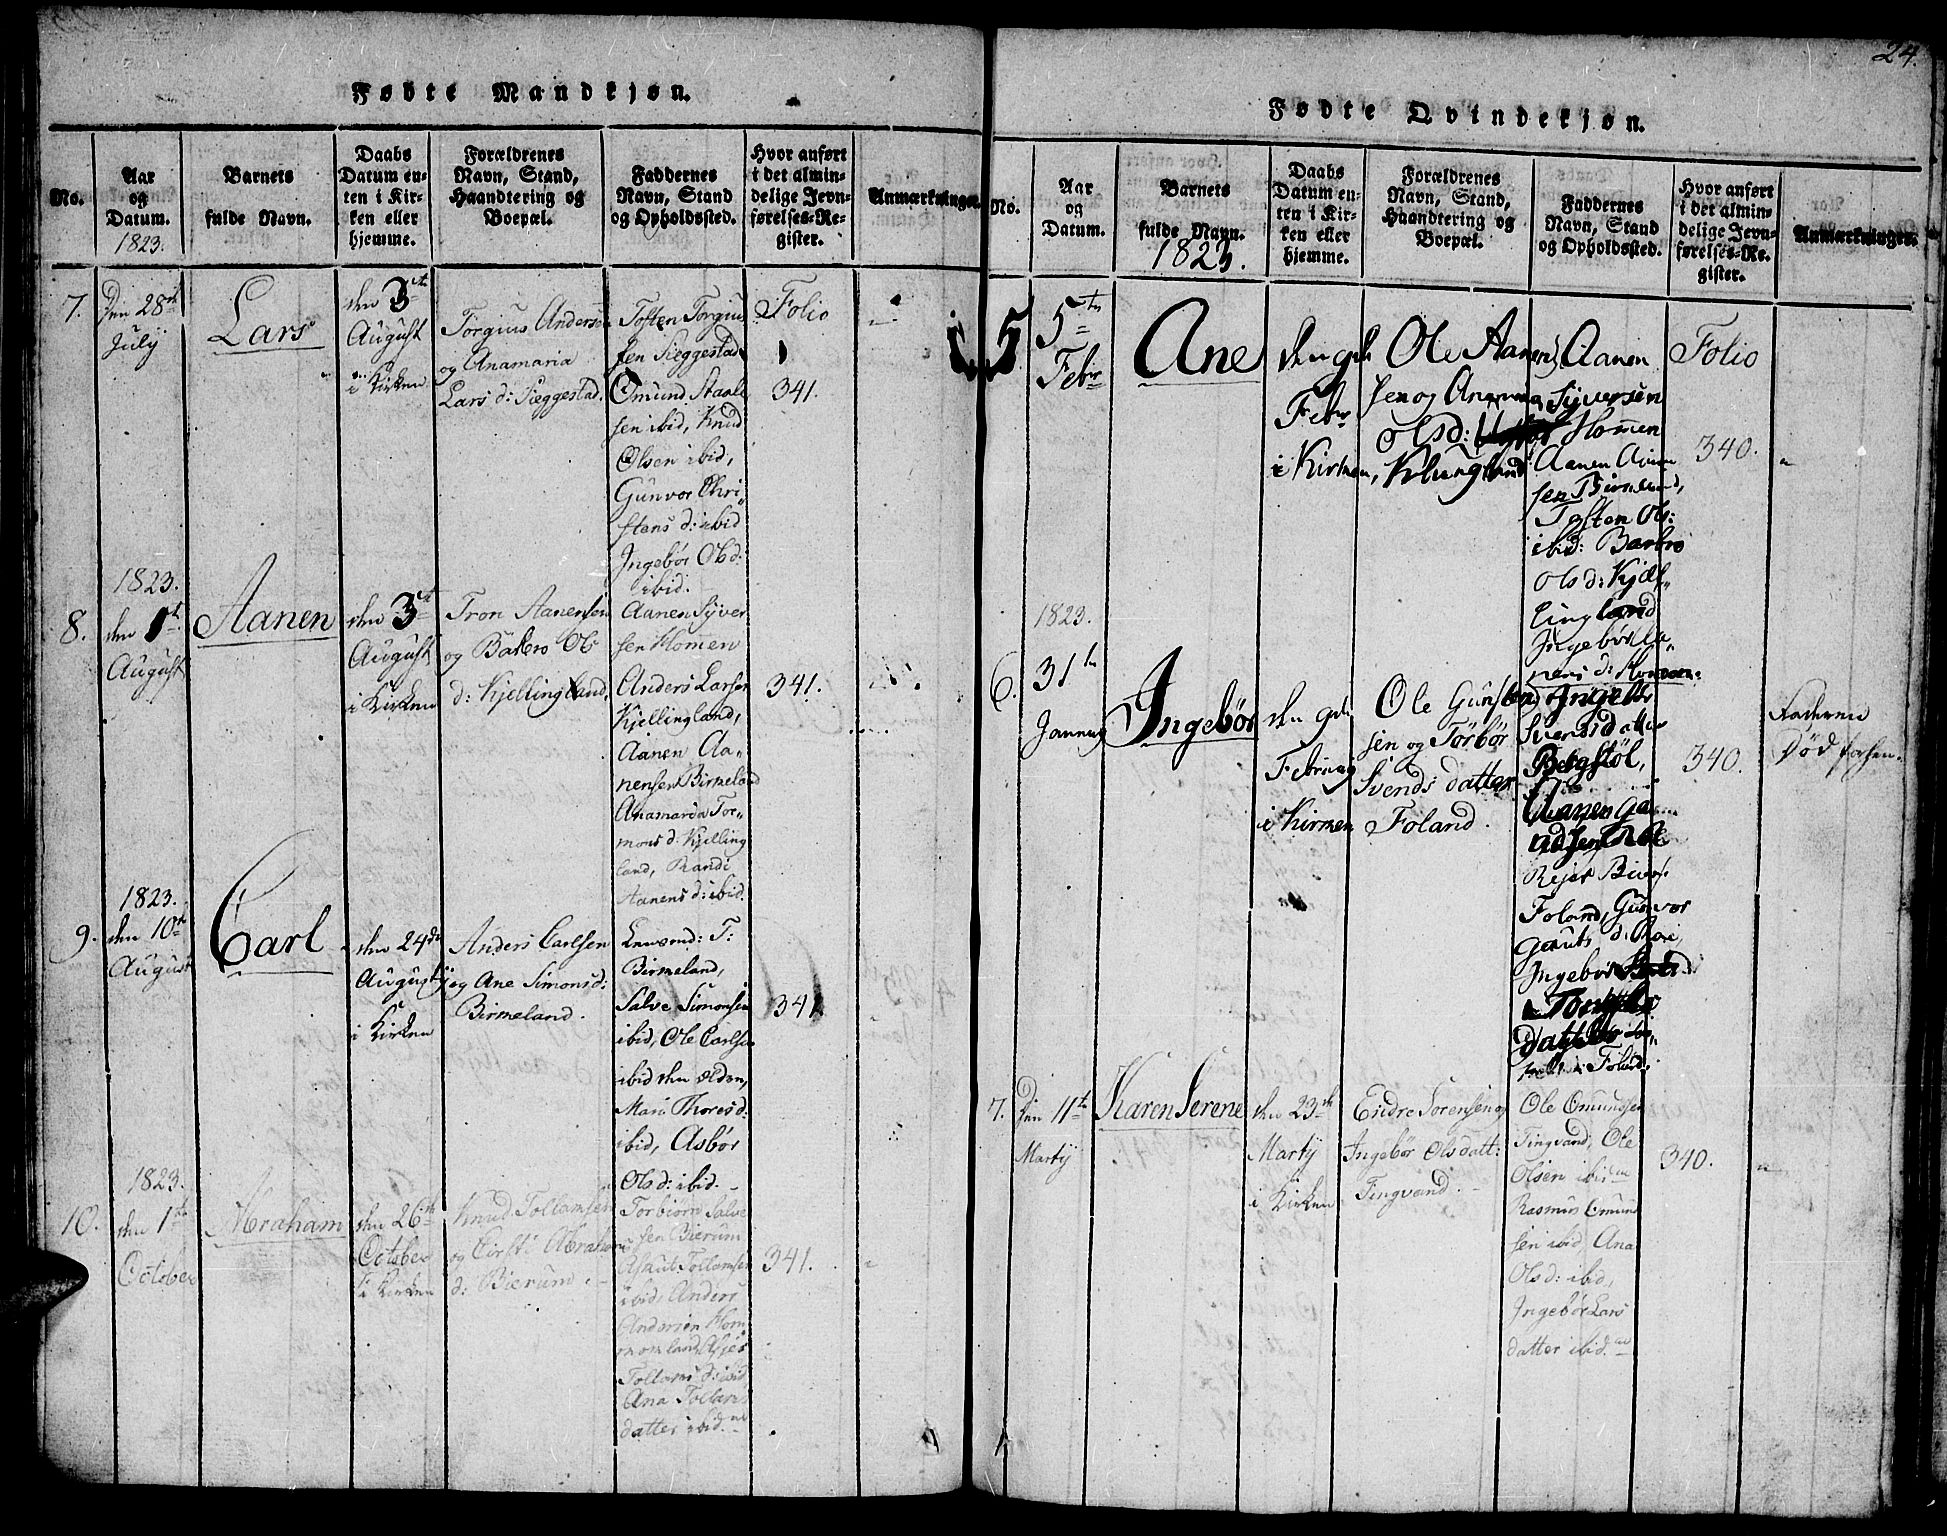 24.
Fødte Mandkjøn.
No.
Aar
og
Datum.
1823.
Barnets
fulde Navn.
Daabs
Datum en-
ten i Kir-
ken eller
hjemme.
Forældrenes
Navn, Stand,
Haandtering og
Boepæl.
Faddernes
Navn, Stand
og Opholdssted.
Hvor anført
i det almin-
delige Jevn-
førelses-Re-
gister.
Anmærkninger.
7.
Den 28de
July
Lars
den 3de
August
i Kirken
Torgius Anders:
og Anamaria
Lars d: Sieggestad.
Tosten Torgius
sen Sieggestad
Omund Staale
sen ibid, Knud
Olsen ibid,
Gunvor Chri-
stens d: ibid
Ingebør Ols d:
ibid.
Folio
341.
8.
1823.
den 1te
August
Aanen
den 3de
August
i Kirken
Tron Aanensen
og Ols
d: Kjellingland,
Aanen Syver
sen Homen
Anders Larsen
Kjellingland,
Aanen Aa-
nensen Birmeland
Anamaria Tor-
mons d: Kjelling
land, Randi
Aanens d: ibid.
341.
9.
1823.
den 10de
August
Carl
den 24de
August
i Kirken
Anders Carlsen
og Ane Simons d:
Birmeland.
T:
Birmeland,
Salve Simonsen
ibid, Ole Carlsen
ibid den Ælden,
Mari Thores d:
ibid, Asbør
Ols d: ibid.
341
10.
1823.
den 1te
October
Abraham
den 26de
October
i Kirken
Knud Tollamsen
og Cirsti Abrahams
d: Bierum.
Torbiorn Salve
sen Bierum
Aslaut Tollamsen
ibid, Anders
Andersen Hom
momland,
Tollams d: ibid
Ana Tollams
datter ibid.
341.
Fødte Qvindekjøn.
No.
Aar
og
Datum.
Barnets
fulde Navn.
1823.
Daabs
Datum en-
ten i Kir-
ken eller
hjemme.
Forældrenes
Navn, Stand,
Haandtering og
Boepæl.
Faddernes
Navn, Stand
og Opholdssted.
Hvor anført
i det almin-
delige Jevn-
førelses-Re-
gister.
Anmærkninger.
5
5te
Febr
Ane
den 9de
Febr
i Kirken,
Ole Aanen
sen og
Ols d:
Klungland
Aanen
Syversen
Homen
Aanen
sen Birmeland,
Tosten Ols:
ibid: Barbro
Ols d: Kjel-
lingland
Ingebør Aa-
nens d: Homen.
Folio
340.
6.
1823.
31te
January
Ingebør
den 9de
February
i Kirken
Ole Gunsten
sen og Torbør
Svends datter
Foland.
Svends datter
Bergstøl,
Aanen
Foland, Gunvor
Gauts d:
Ingebør
datter
Foland.
340.
7.
Den 11te
Marty
Karen Serene
den 23de
Marty
i Kirken
Endre Sorensen og
Ingebør Olsdatt:
Tingvand.
Ole Omundsen
Tingvand, Ole
Olsen ibid
Rasmus Omund
sen ibid, Ana
Ols d: ibid,
Ingebør Lars
datter ibid.
340.